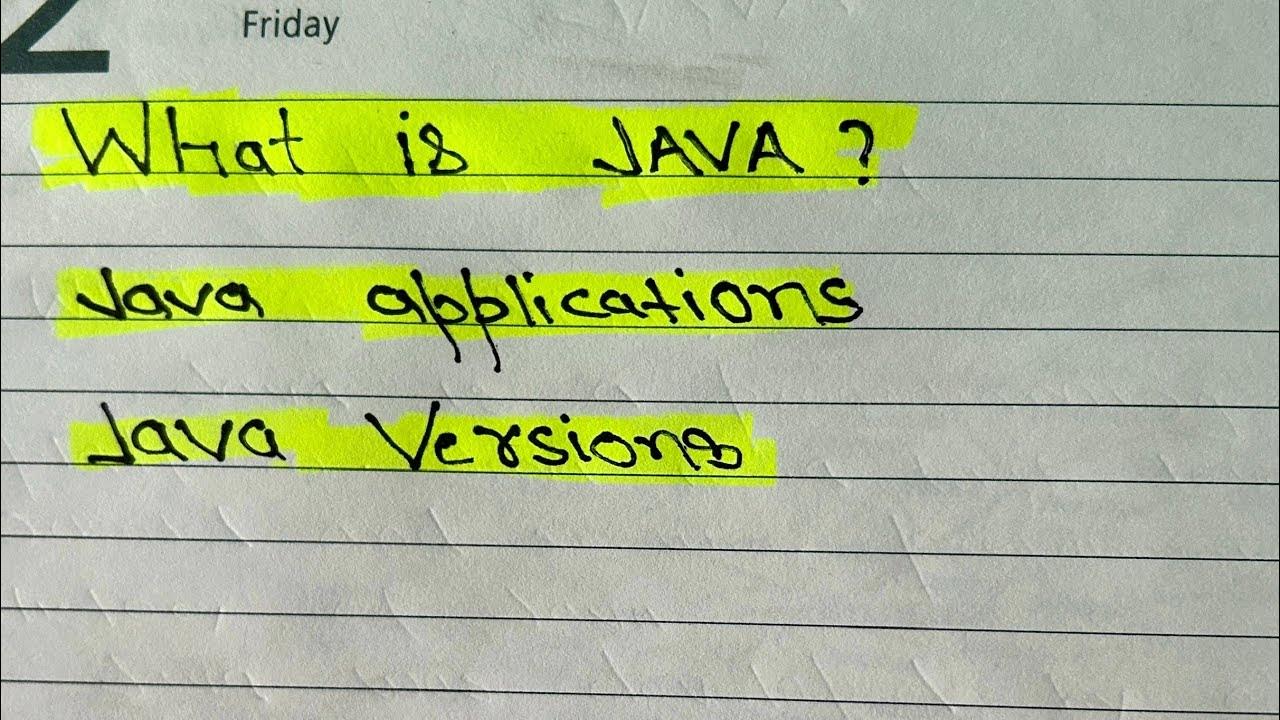 2
Friday
What is JAVA?
Java applications
Java Versions